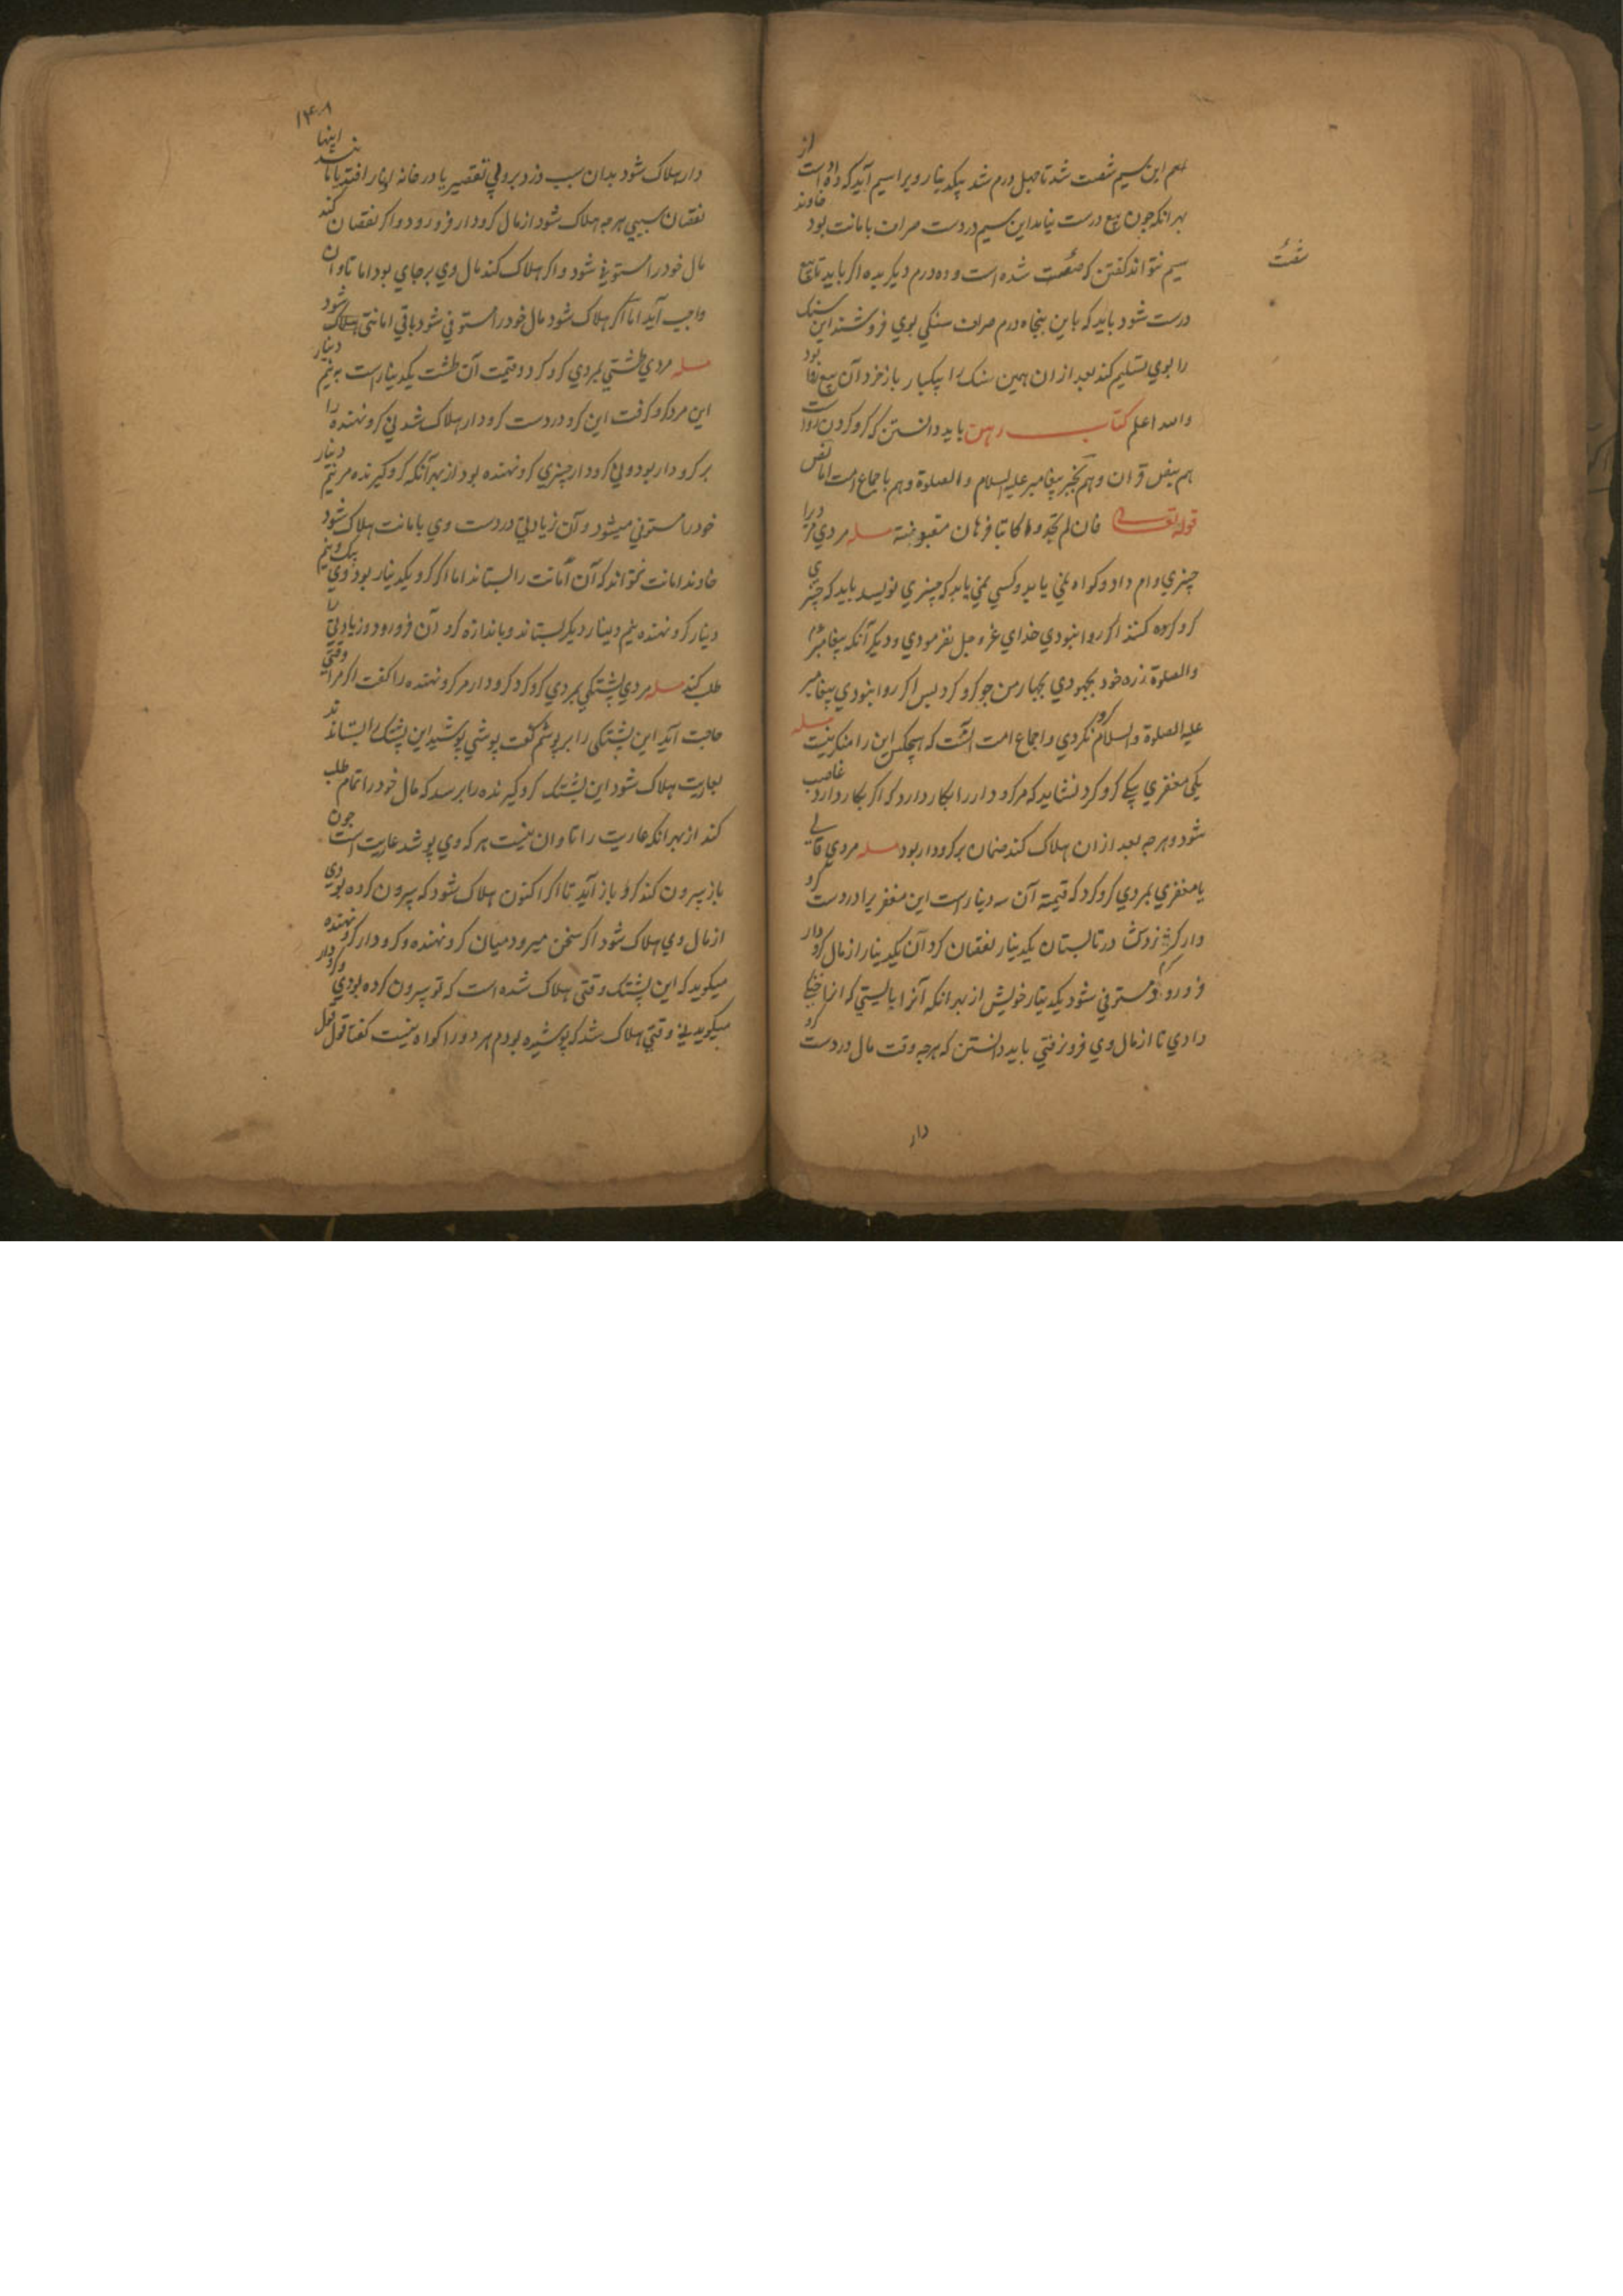 این سیم شصت شد تا چهل درم شد یکدینار ویرا سیم آید که داده است از
بهر انکه چون بیع درست نیامد این سیم در دست صراف بامانت بود خاوند
سیم نتواند کفتن که شصت شده است و ده درم دیکر بده اکر باید تا بیع
شصت
درست شود باید که باین پنجاه درم صراف سنکی بوی فروشند این سنک
را بوی تسلیم کند بعد ازان همین سنک را بیکبار باز خرد آن بیع روا بود
والله اعلم کتاب رهن باید دانستن که کرو کردن روا است
هم بنص قران و هم بخبر پیغامبر علیه السلام والصلوة و هم باجماع امت اما نص
قوله تعالی فان لم تجدوا کاتبا فرهان مقبوضة مسله مردی مردیرا
چیزی وام داد و کواه نمی یابد و کسی نمی یابد که چیزی نویسد باید که چیزی
کرو کرده کنند اکر روا نبودی خدای عز و جل نفرمودی و دیکر آنکه پیغامبر علیه
والصلوة زره خود بجهودی بچهار من جو کرو کرد پس اکر روا نبودی پیغامبر
علیه الصلوة والسلام کرو نکردی و اجماع امت آنست که هیچکس این را منکر نیست مسله
یکی مغفری یکی کرو کرد نشاید که مر کرو دار را بکار دارد که اکر بکار دارد غاصب
شود و هرچه بعد ازان هلاک کند ضمان بر کرودار بود مسله مردی قالی
یا مغفری بمردی کرو کرد که قیمة آن سه دینار است این مغفر یرا در دست کرو
دار کرم زدش در تابستان یکدینار نقصان کرد آن یکدینار از مال کرو دار
فرو رود و مستوفی شود یکدینار خویش از بهر انکه آنرا بایستی که انجا خنکی
دادی تا از مال وی فرو نرفتی باید دانستن که هرچه وقت مال در دست کرو
دار
۱۴۰۸
دار هلاک شود بدان سبب دزد برد بی تقصیر یا در خانه انبار افتد یا مانند اینها
نقصان سببی هرچه هلاک شود از مال کرودار فرو رود و اکر نقصان کند
مال خود را مستوفی شود و اکر هلاک کند مال وی بر جای بود اما تاوان
واجب آید اما اکر هلاک شود مال خود را مستوفی شود باقی امانتی هلاک شود
مسله مردی طشتی بمردی کرو کرد و قیمت آن طشت یکدینار است به نیم دینار
این مرد کرو کرفت این کرو در دست کرودار هلاک شد نی کرو نهنده را
بر کرودار بود و نی کرودار چیزی کرو نهنده بود از بهر آنکه کرو کیرنده مر نیم دینار
خود را مستوفی میشود و آن زیادتی در دست وی بامانت هلاک شود
خاوند امانت نتواند که آن امانت را بستاند اما اکر کرو یکدینار بود وی بیک و نیم
دینار کرو نهنده نیم دینار دیکر بستاند و باندازه کرو آن فرو رود و زیادتی را
طلب کند مسله مردی پشتکی بمردی کرو کرد کرودار مر کرو نهنده را کفت اکر مرا وقتی
حاجت آید این پشتکی را بر پوشم کفت پوشی پوشید این پشتک را بستاند
بعاریت هلاک شود این پشتک کرو کیرنده را برسد که مال خود را تمام طلب
کند از بهر انکه عاریت را تاوان نیست هر که وی پوشد عاریت است چون
باز بیرون کند کرو باز آید تا اکر اکنون هلاک شود که بیرون کرده بودی
از مال وی هلاک شود اکر سخن میرود میان کرو نهنده و کرودار کرو نهنده
میکوید که این پشتک وقتی هلاک شده است که تو بیرون کرده بودی و کرودار
میکوید نی وقتی هلاک شد که پوشیده بودم هر دو را کواه نیست کفتا قول قول